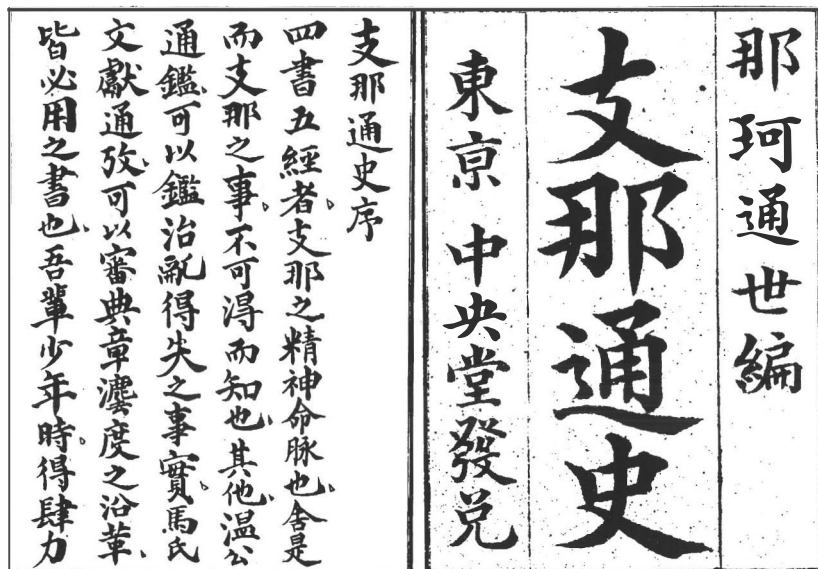 那珂通世編
支那通史
東京 中央堂發兌
支那通史序
四書五經者、支那之精神命脉也、舍是
而支那之事、不可得而知也、其他溫公
通鑑、可以鑑治亂得失之事實、馬氏
文獻通攷、可以審典章灋度之沿革、
皆必用之書也、吾輩少年時、得肆力